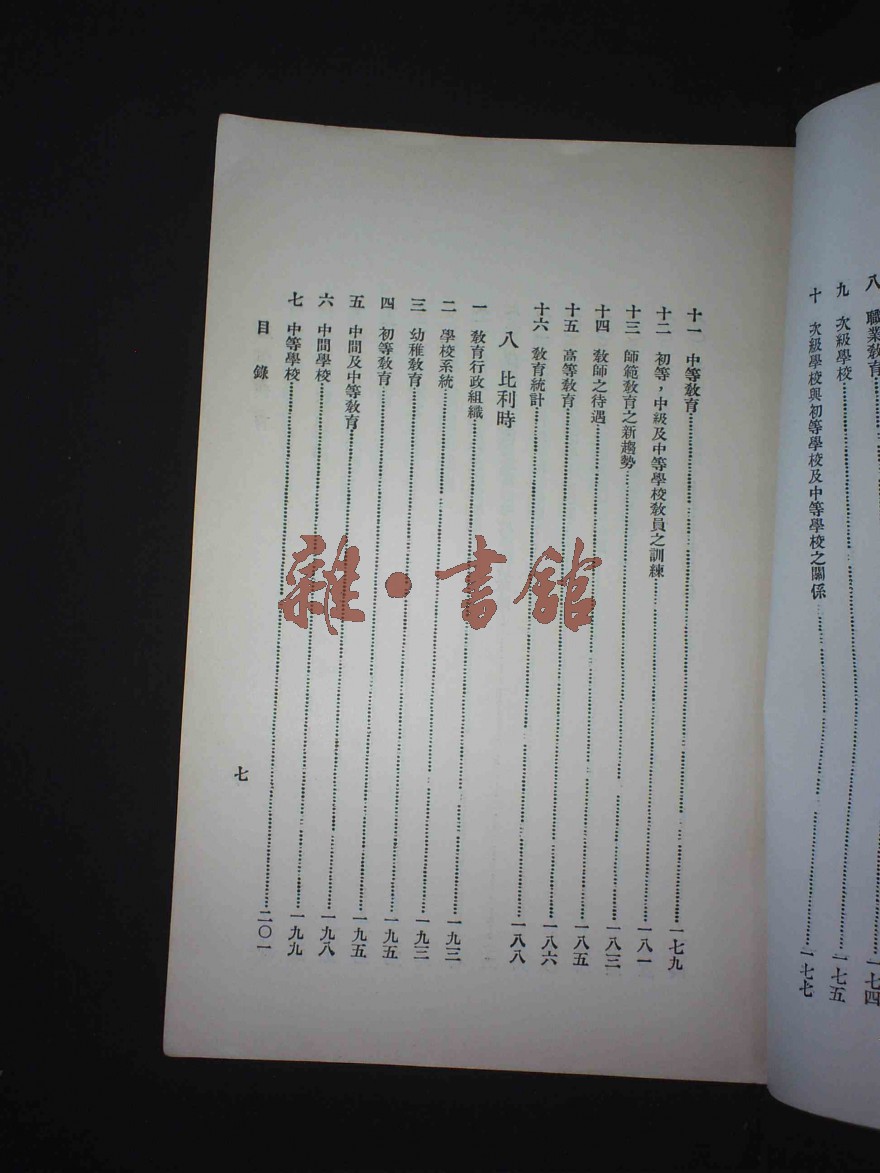 八　職業教育……一七四
九　次級學校……一七五
十　次級學校與初等學校及中等學校之關係……一七七
十一　中等教育……一七九
十二　初等，中級及中等學校教員之訓練……一八一
十三　師範教育之新趨勢……一八三
十四　教師之待遇……一八五
十五　高等教育……一八六
十六　教育統計……一八八
八　比利時
一　教育行政組織……一九三
二　學校系統……一九三
三　幼稚教育……一九五
四　初等教育……一九五
五　中間及中等教育……一九八
六　中間學校……一九九
七　中等學校……二〇一
目錄　七
雜·書館